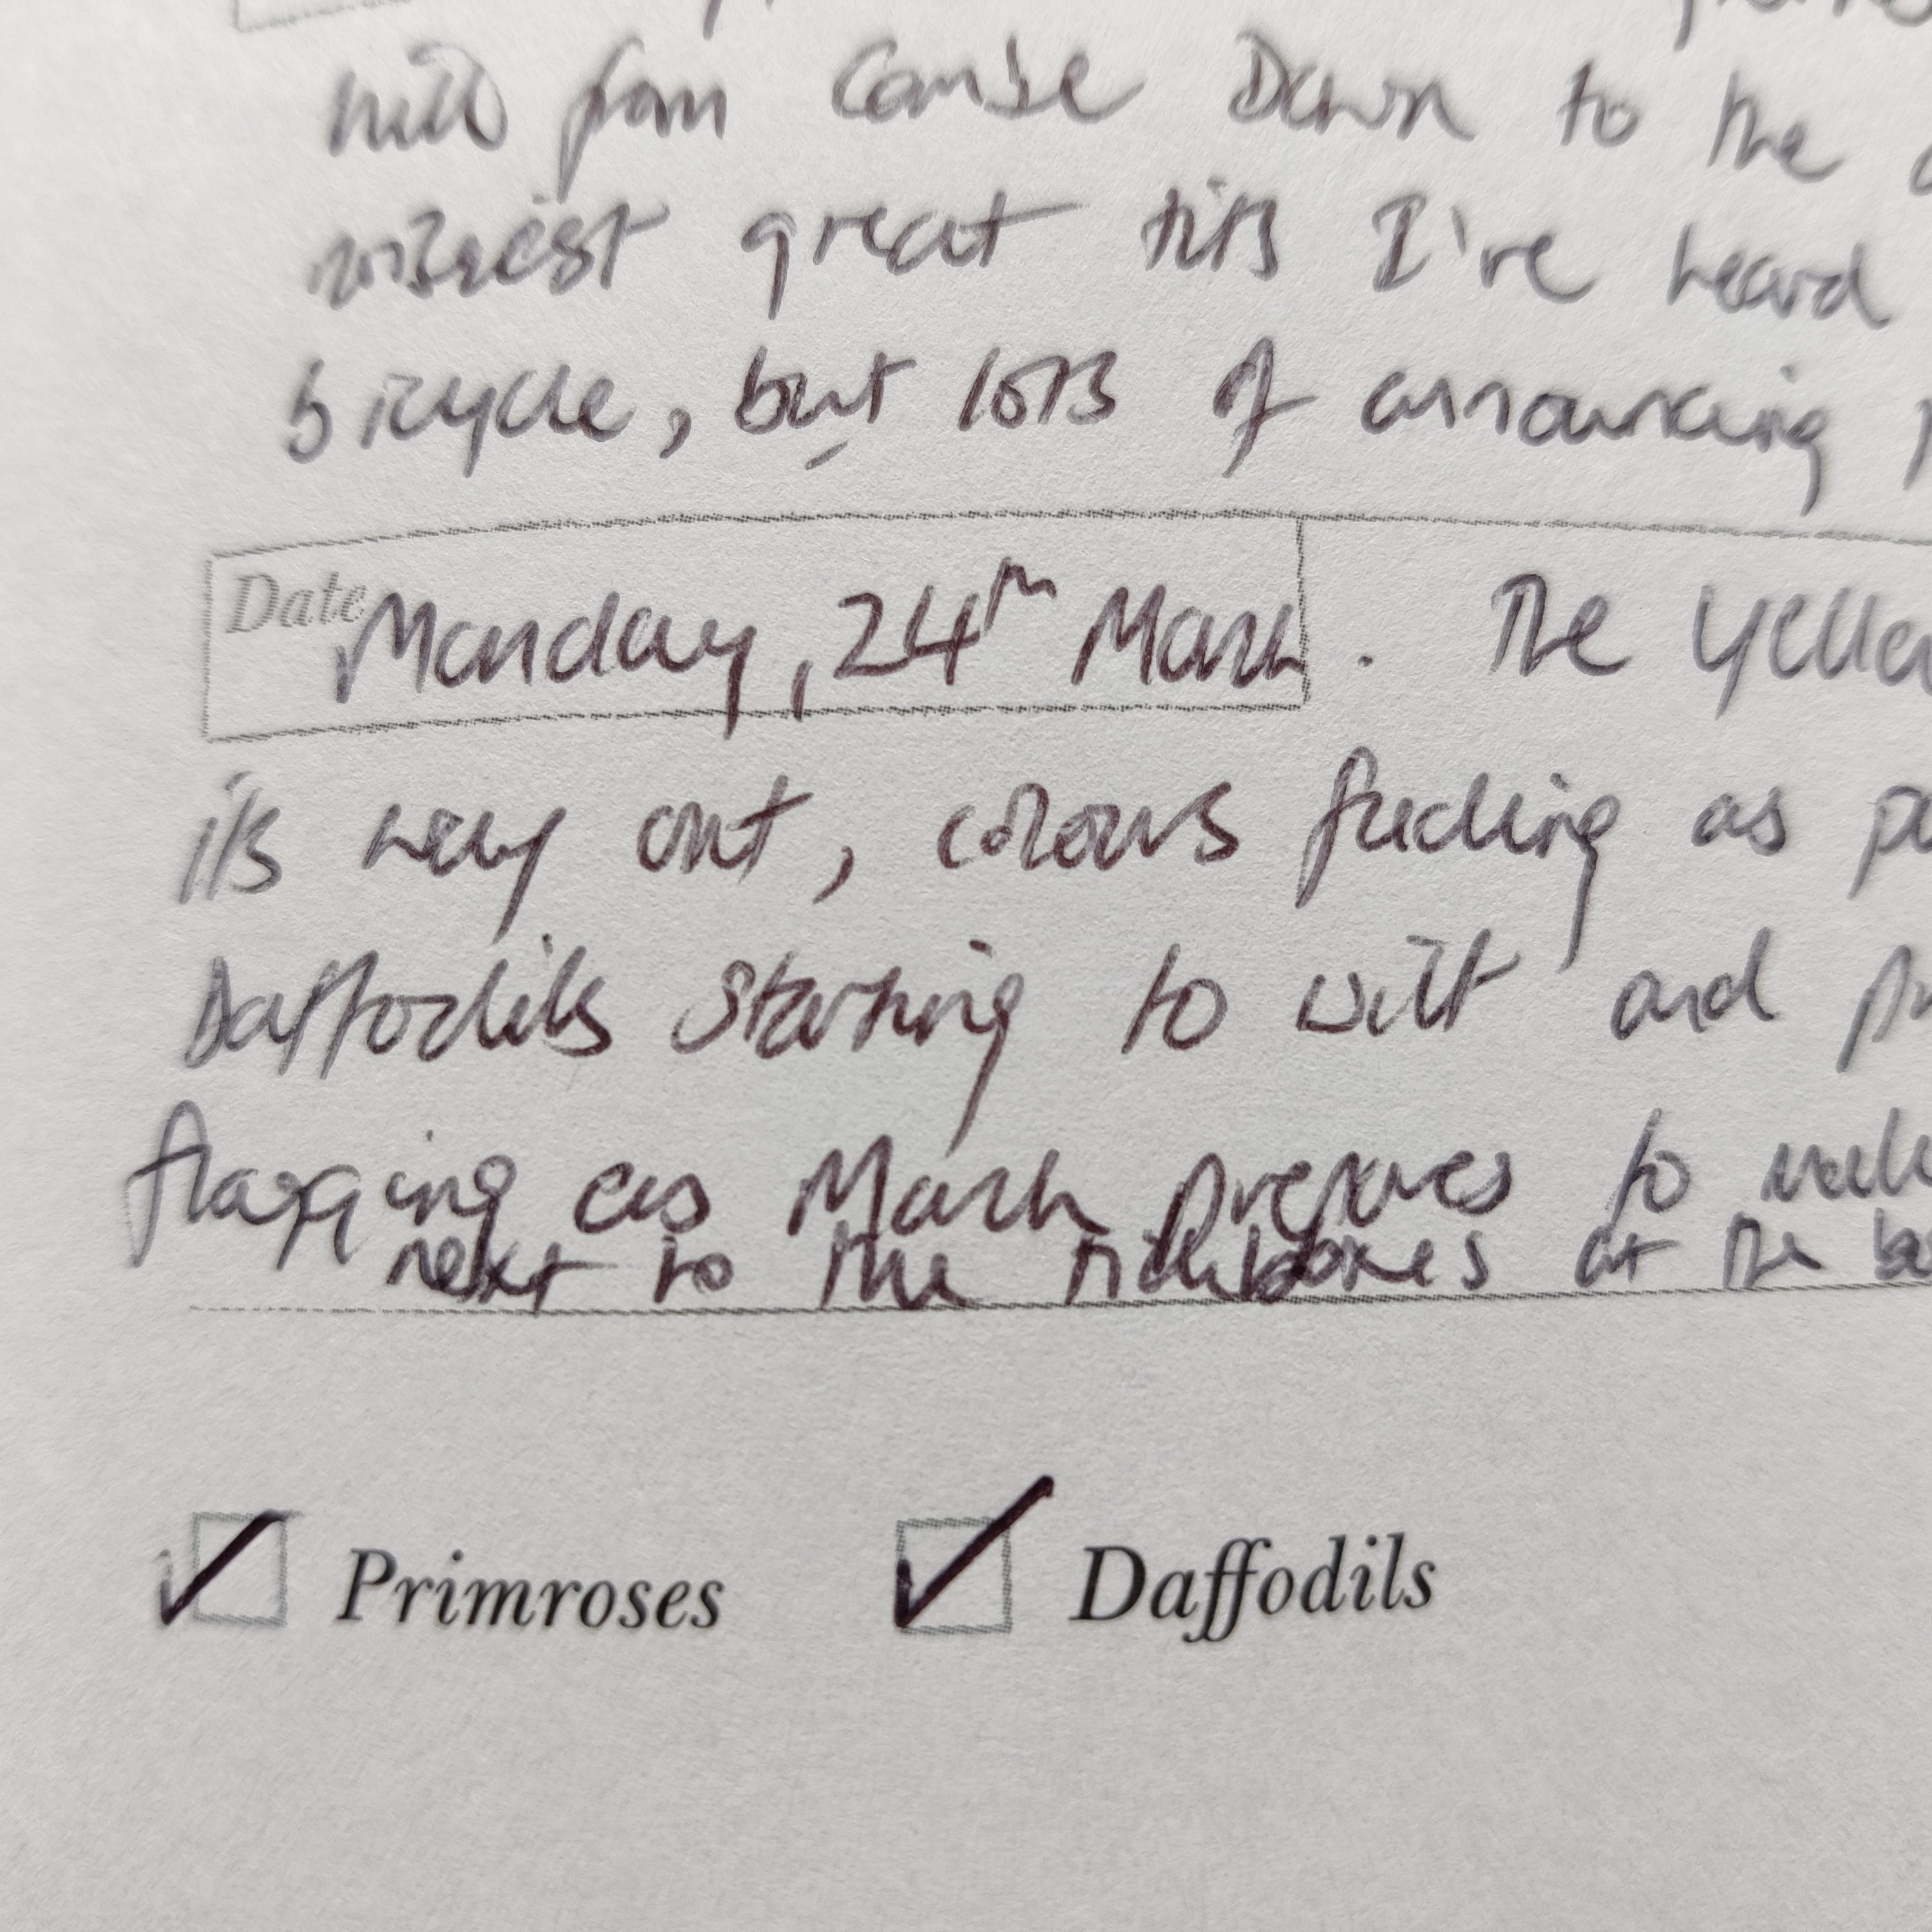 to the
noisiest great tits I've heard
bicycle, but lots of announcing
Date Monday, 24th March. The Yellow
its way out, colours fading as
Daffodils starting to wilt and
flagging as March prepares to
next to the tickboxes at the
Primroses Daffodils